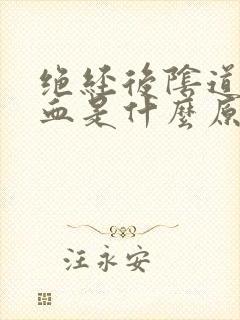 绝经後陰道
血是什麼原
汪永安